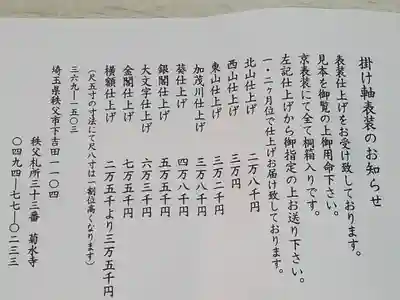 掛け軸表装のお知らせ
表装仕上げをお受け致しております。
見本を御覧の上御用命下さい。
京表装にて全て桐箱入りです。
左記仕上げから御指定の上お送り下さい。
一・二ヶ月位で仕上げお届け致しております。
北山仕上げ 二万八千円
西山仕上げ 三万円
東山仕上げ 三万二千円
加茂川仕上げ 三万八千円
葵仕上げ 四万八千円
銀閣仕上げ 五万五千円
大文字仕上げ 六万三千円
金閣仕上げ 七万五千円
横額仕上げ 二万五千より三万五千円
（尺五寸の寸法にて尺八寸は一割位高くなります）
三六九ー一五〇三
埼玉県秩父市下吉田一一〇四
秩父札所三十三番 菊水寺
〇四九四ー七七ー〇二三三